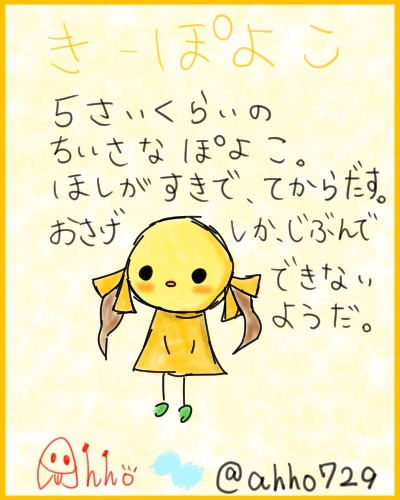 きーぽよこ
5さいくらいの
ちいさなぽよこ。
ほしがすきで、てからだす。
おさげ しか、じぶんで
できない
ようだ。
Ahho
@ahho729